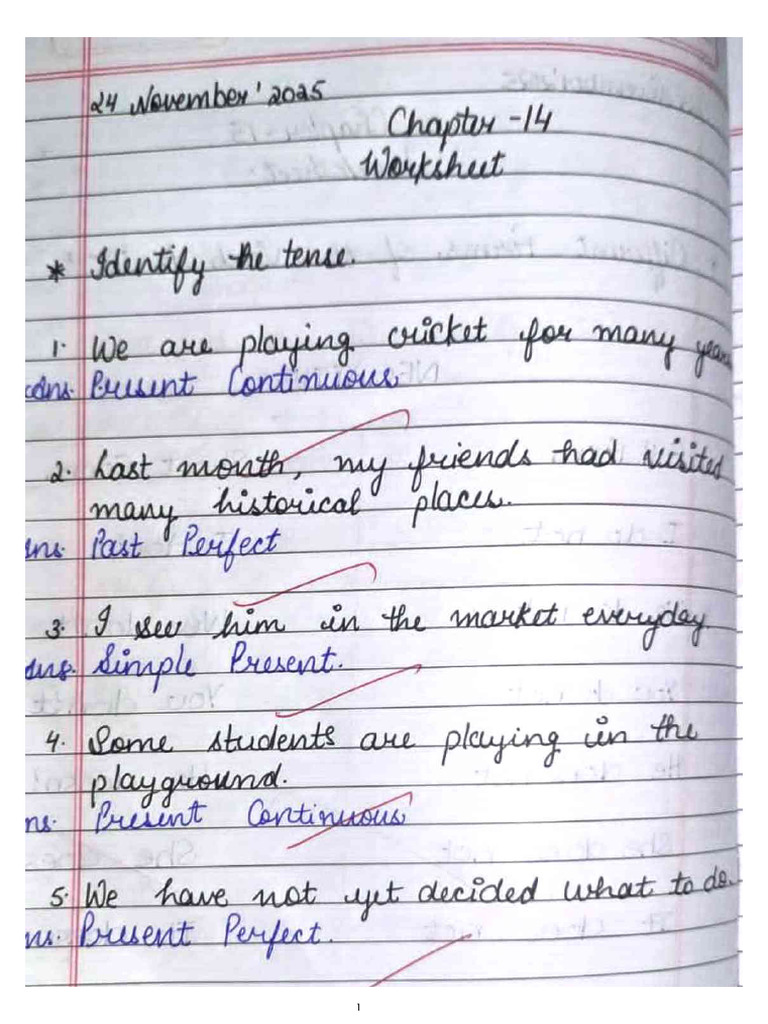 24 November' 2025
Chapter -14
Worksheet
* Identify the tense.
1. We are playing cricket for many years
Ans. Present Continuous
2. Last month, my friends had visited
many historical places.
Ans. Past Perfect
3. I see him in the market everyday
Ans. Simple Present.
4. Some students are playing in the
playground.
Ans. Present Continuous
5. We have not yet decided what to do.
Ans. Present Perfect.
1